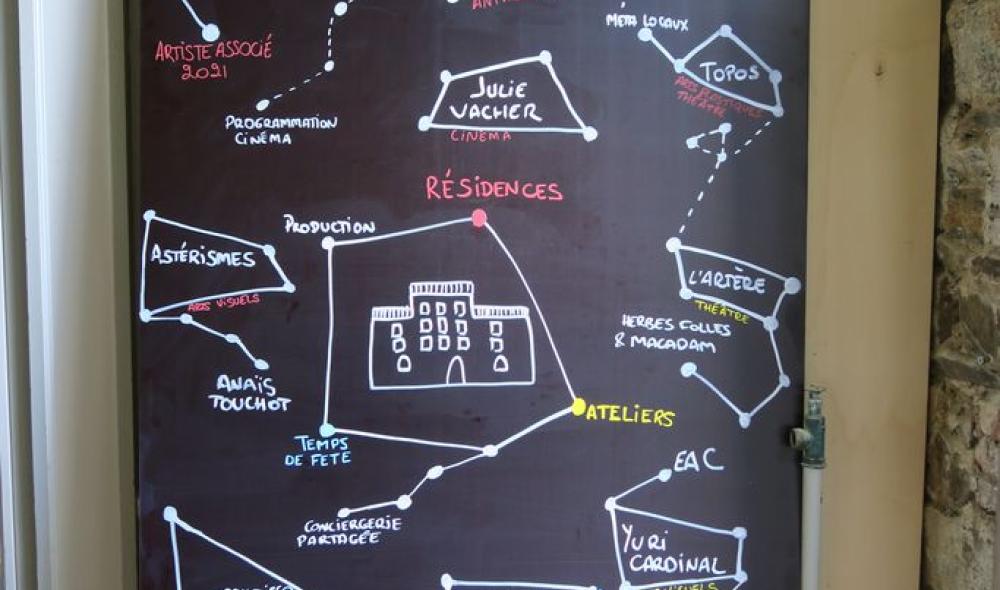 ARTISTE ASSOCIÉ
2021
PROGRAMMATION
CINÉMA
JULIE
VACHER
CINÉMA
MÉTA LOCAUX
TOPOS
ARTS PLASTIQUES
THÉÂTRE
RÉSIDENCES
PRODUCTION
ASTÉRISMES
ARTS VISUELS
ANAÏS
TOUCHOT
L'ARTÈRE
THÉÂTRE
HERBES FOLLES
& MACADAM
ATELIERS
TEMPS
DE FÊTE
CONCIERGERIE
PARTAGÉE
EAC
YURI
CARDINAL